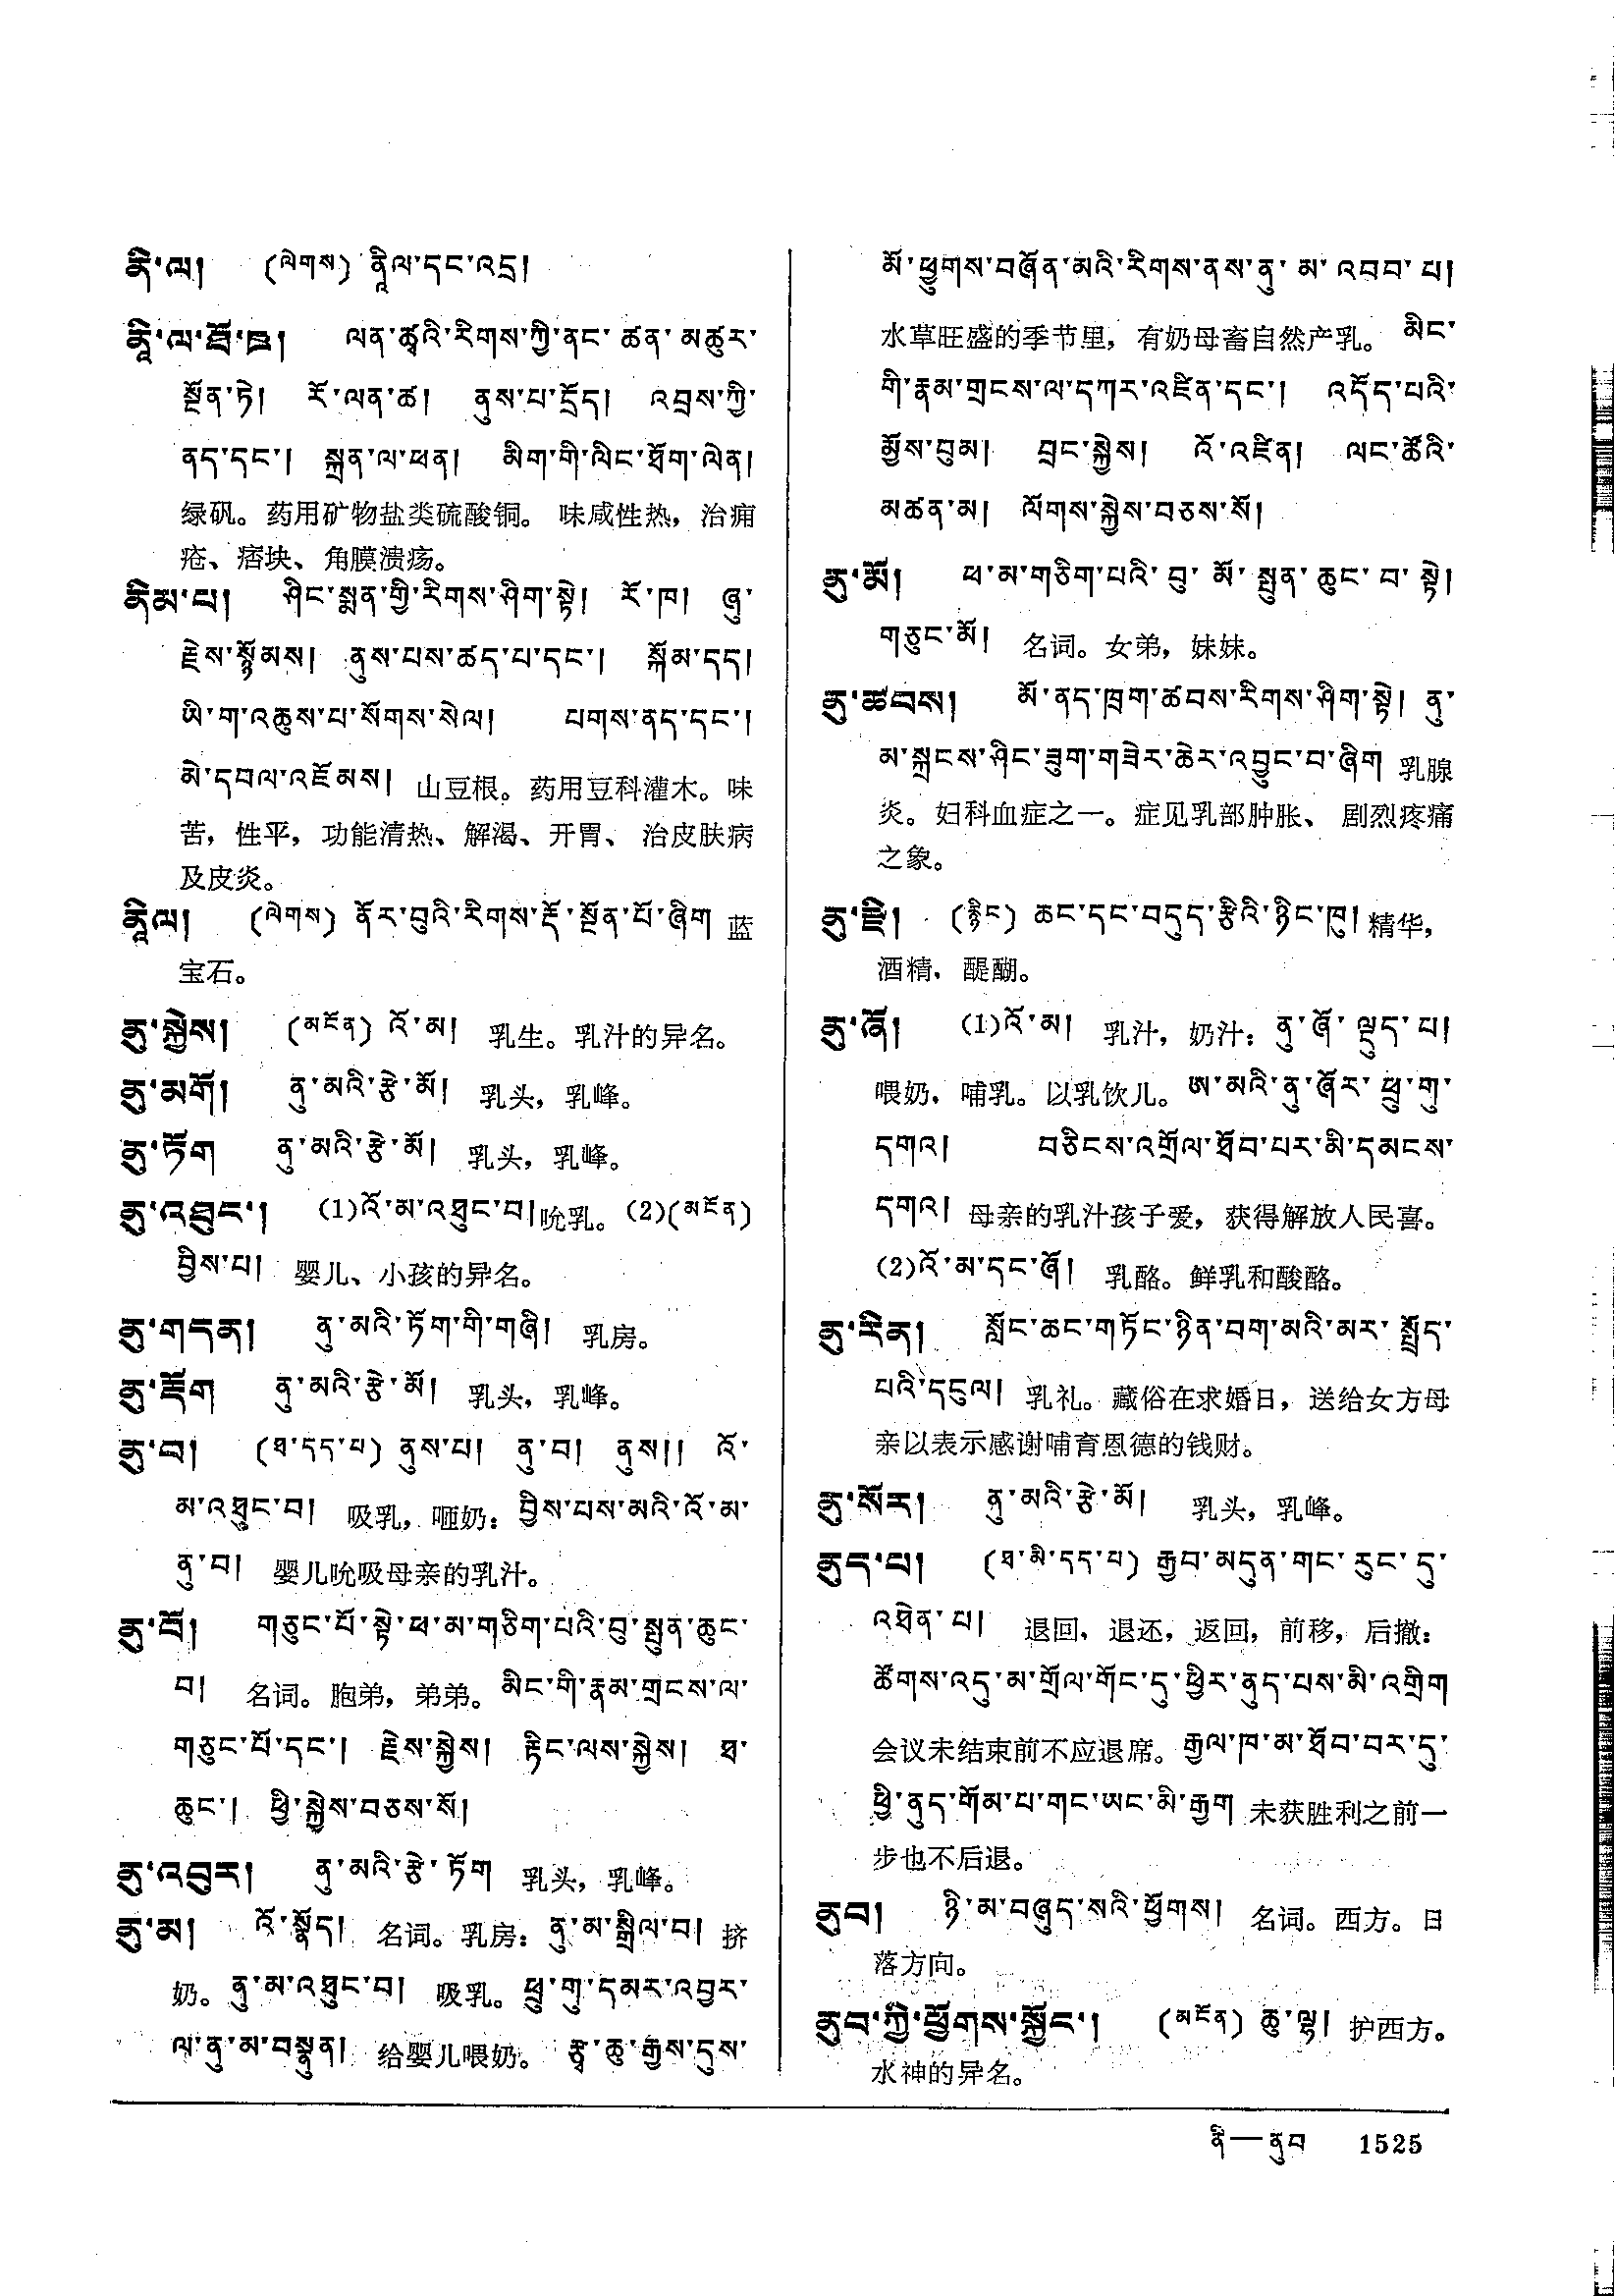 ནི་ལ། (ལེགས) ནཱིལ་དང་འདྲ།
ནཱི་ལ་ཐོ་ཊ། ལན་ཚྭའི་རིགས་ཀྱི་ནང་ཚན་མཚུར་
སྔོན་ཏེ། རོ་ལན་ཚ། ནུས་པ་དྲོད། འབྲས་ཀྱི་
ནད་དང་། སྐྲན་ལ་ཕན། མིག་གི་ལིང་ཐོག་ལེན།
绿矾。药用矿物盐类硫酸铜。味咸性热，治痈
疮、痞块、角膜溃疡。
ནིམ་པ། ཤིང་སྨན་གྱི་རིགས་ཤིག་སྟེ། རོ་ཁ། ཞུ་
རྗེས་སྙོམས། ནུས་པས་ཚད་པ་དང་། སྐོམ་དད།
ཡི་ག་འཆུས་པ་སོགས་སེལ། པགས་ནད་དང་།
མེ་དབལ་འཇོམས། 山豆根。药用豆科灌木。味
苦，性平，功能清热、解渴、开胃、治皮肤病
及皮炎。
ནཱིལ། (ལེགས) ནོར་བུའི་རིགས་རྡོ་སྔོན་པོ་ཞིག 蓝
宝石。
ནུ་སྐྱེས། (མངོན) འོ་མ། 乳生。乳汁的异名。
ནུ་མགོ། ནུ་མའི་རྩེ་མོ། 乳头，乳峰。
ནུ་ཏོག ནུ་མའི་རྩེ་མོ། 乳头，乳峰。
ནུ་འཐུང་། (1)འོ་མ་འཐུང་བ། 吮乳。(2)(མངོན)
བྱིས་པ། 婴儿、小孩的异名。
ནུ་གདན། ནུ་མའི་ཏོག་གི་གཞི། 乳房。
ནུ་ཇོག ནུ་མའི་རྩེ་མོ། 乳头，乳峰。
ནུ་བ། (ཐ་དད་པ) ནུས་པ། ནུ་བ། ནུས།། འོ་
མ་འཐུང་བ། 吸乳，咂奶：བྱིས་པས་མའི་འོ་མ་
ནུ་བ། 婴儿吮吸母亲的乳汁。
ནུ་བོ། གཅུང་པོ་སྟེ་ཕ་མ་གཅིག་པའི་བུ་སྤུན་ཆུང་
བ། 名词。胞弟，弟弟。མིང་གི་རྣམ་གྲངས་ལ་
གཅུང་པོ་དང་། རྗེས་སྐྱེས། རྟིང་ལས་སྐྱེས། ཐ་
ཆུང་། ཕྱི་སྐྱེས་བཅས་སོ།
ནུ་འབུར། ནུ་མའི་རྩེ་ཏོག 乳头，乳峰。
ནུ་མ། འོ་སྣོད། 名词。乳房：ནུ་མ་སྒྲིལ་བ། 挤
奶。ནུ་མ་འཐུང་བ། 吸乳。ཕྲུ་གུ་དམར་འབྱར་
ལ་ནུ་མ་བསྣུན། 给婴儿喂奶。རྩྭ་ཆུ་རྒྱས་དུས་
མོ་ཕྱུགས་བཞོན་མའི་རིགས་ནས་ནུ་མ་འབབ་པ།
水草旺盛的季节里，有奶母畜自然产乳。མིང་
གི་རྣམ་གྲངས་ལ་དཀར་འཛིན་དང་། འདོད་པའི་
མྱོས་བུམ། བྲང་སྐྱེས། འོ་འཛིན། ལང་ཚོའི་
མཚན་མ། ལོགས་སྐྱེས་བཅས་སོ།
ནུ་མོ། ཕ་མ་གཅིག་པའི་བུ་མོ་སྤུན་ཆུང་བ་སྟེ།
གཅུང་མོ། 名词。女弟，妹妹。
ནུ་ཚབས། མོ་ནད་ཁྲག་ཚབས་རིགས་ཤིག་སྟེ། ནུ་
མ་སྐྲངས་ཤིང་ཟུག་གཟེར་ཆེར་འབྱུང་བ་ཞིག 乳腺
炎。妇科血症之一。症见乳部肿胀、剧烈疼痛
之象。
ནུ་ཇི། (རྙིང) ཆང་དང་བདུད་རྩིའི་ཉིང་ཁུ། 精华，
酒精，醍醐。
ནུ་ཞོ། (1)འོ་མ། 乳汁，奶汁：ནུ་ཞོ་ལྡུད་པ།
喂奶，哺乳。以乳饮儿。ཨ་མའི་ནུ་ཞོར་ཕྲུ་གུ་
དགའ། བཅིངས་འགྲོལ་ཐོབ་པར་མི་དམངས་
དགའ། 母亲的乳汁孩子爱，获得解放人民喜。
(2)འོ་མ་དང་ཞོ། 乳酪。鲜乳和酸酪。
ནུ་རིན། སློང་ཆང་གཏོང་ཉིན་བག་མའི་མར་སྤྲོད་
པའི་དངུལ། 乳礼。藏俗在求婚日，送给女方母
亲以表示感谢哺育恩德的钱财。
ནུ་སོར། ནུ་མའི་རྩེ་མོ། 乳头，乳峰。
ནུད་པ། (ཐ་མི་དད་པ) རྒྱབ་མདུན་གང་རུང་དུ་
འཐེན་པ། 退回，退还，返回，前移，后撤：
ཚོགས་འདུ་མ་གྲོལ་གོང་དུ་ཕྱིར་ནུད་པས་མི་འགྲིག
会议未结束前不应退席。རྒྱལ་ཁ་མ་ཐོབ་བར་དུ་
ཕྱི་ནུད་གོམ་པ་གང་ཡང་མི་རྒྱག 未获胜利之前一
步也不后退。
ནུབ། ཉི་མ་བཞུད་སའི་ཕྱོགས། 名词。西方。日
落方向。
ནུབ་ཀྱི་ཕྱོགས་སྐྱོང་། (མངོན) ཆུ་ལྷ། 护西方。
水神的异名。
ནི—ནུབ 1525